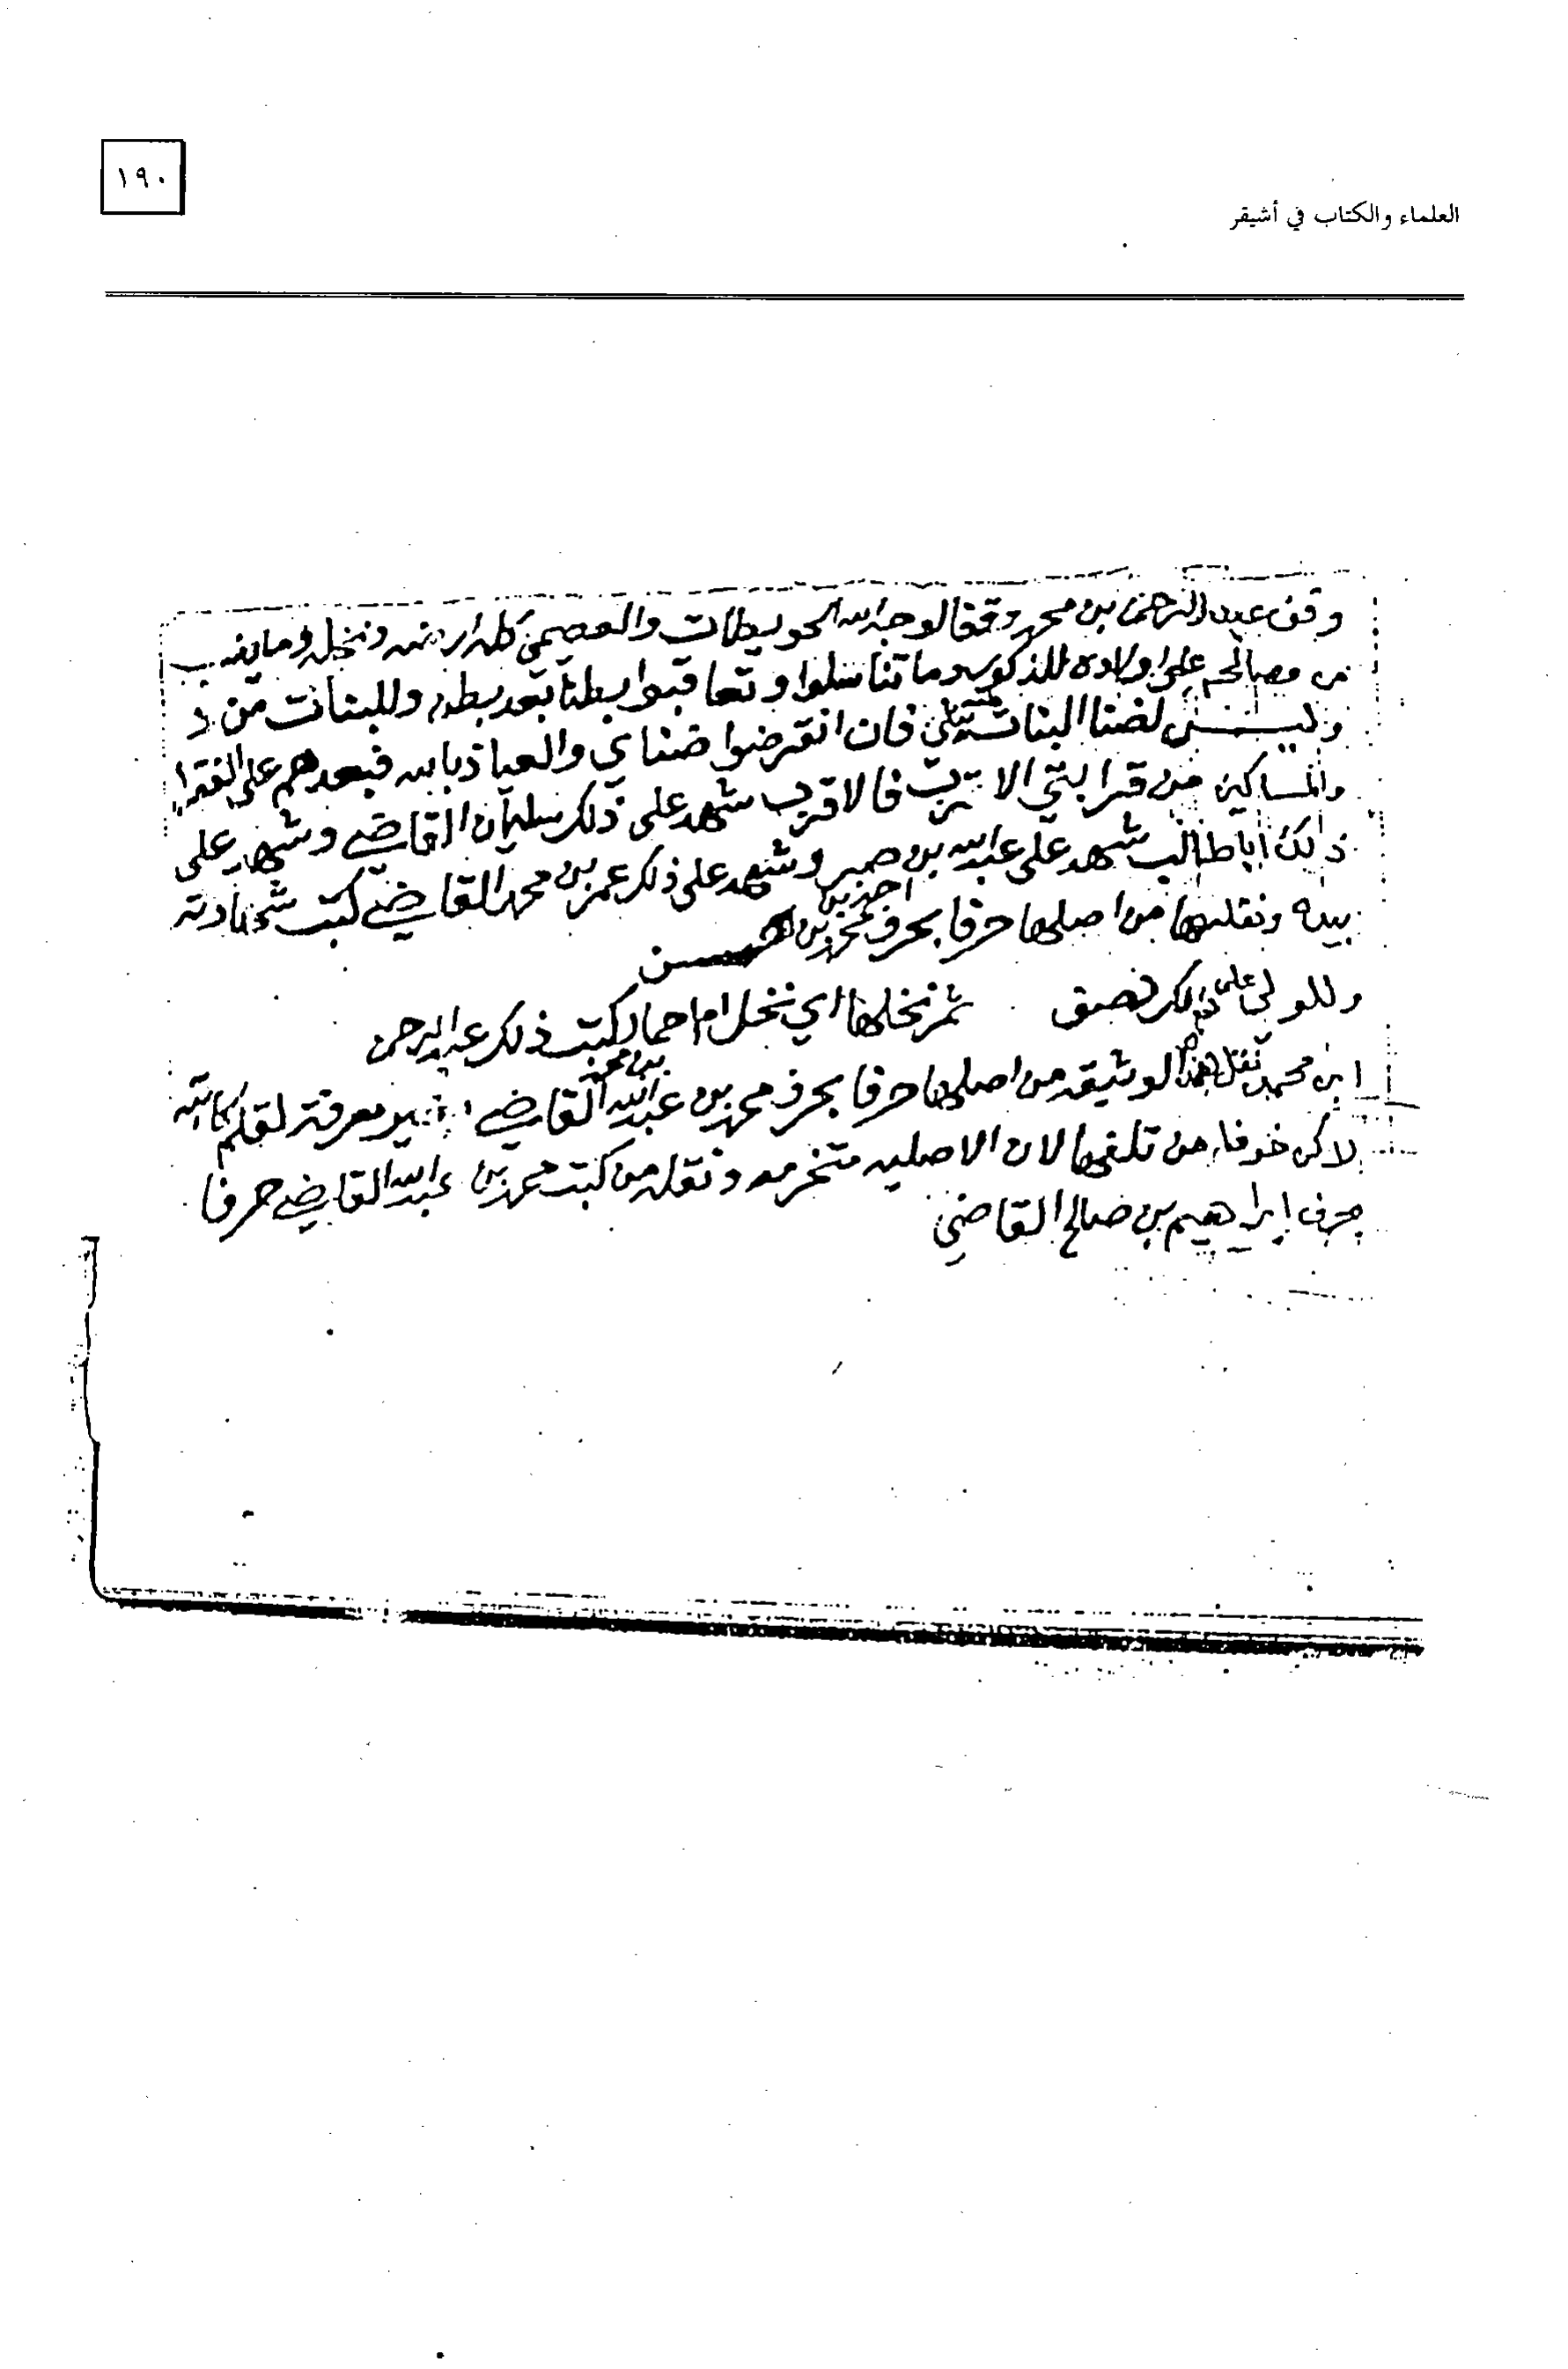 ١٩٠
العلماء والكتاب في أشيقر
وقف عبد الرحمن بن محمد وقفا لوجه الله الحويطات والعصيمي كله ارضه ونخله وما ينسب
من مصالحه على اولاده الذكور وما تناسلوا وتعاقبوا بطنا بعد بطن وللبنات من
وليس لضنا البنات شي فان انقرضوا ضناي والعياذ بالله فبعدهم على الفقرا
والمساكين من قرابتي الاقرب فالاقرب شهد على ذلك سليمان القاضي وشهد على
ذلك اباطالب شهد على عبد الله بن وشهد على ذلك عمر بن محمد القاضي كتبت شهادته
بيده ونقلها من اصلها حرفا بحرف محمد بن احمد بن حسن
وللولي على ذلك ثمر نخلها اي نخل ام حمار كتبت ذلك عبد الرحمن
ابن محمد نقل هذه الوثيقه من اصلها حرفا بحرف محمد بن عبد الله بن محمد القاضي معرفة لقلم كاتبه
لاكن خوفا من تلفها لان الاصليه متخرمه ونقله من كتب محمد بن عبد الله القاضي حرفا
بحرف ابراهيم بن صالح القاضي